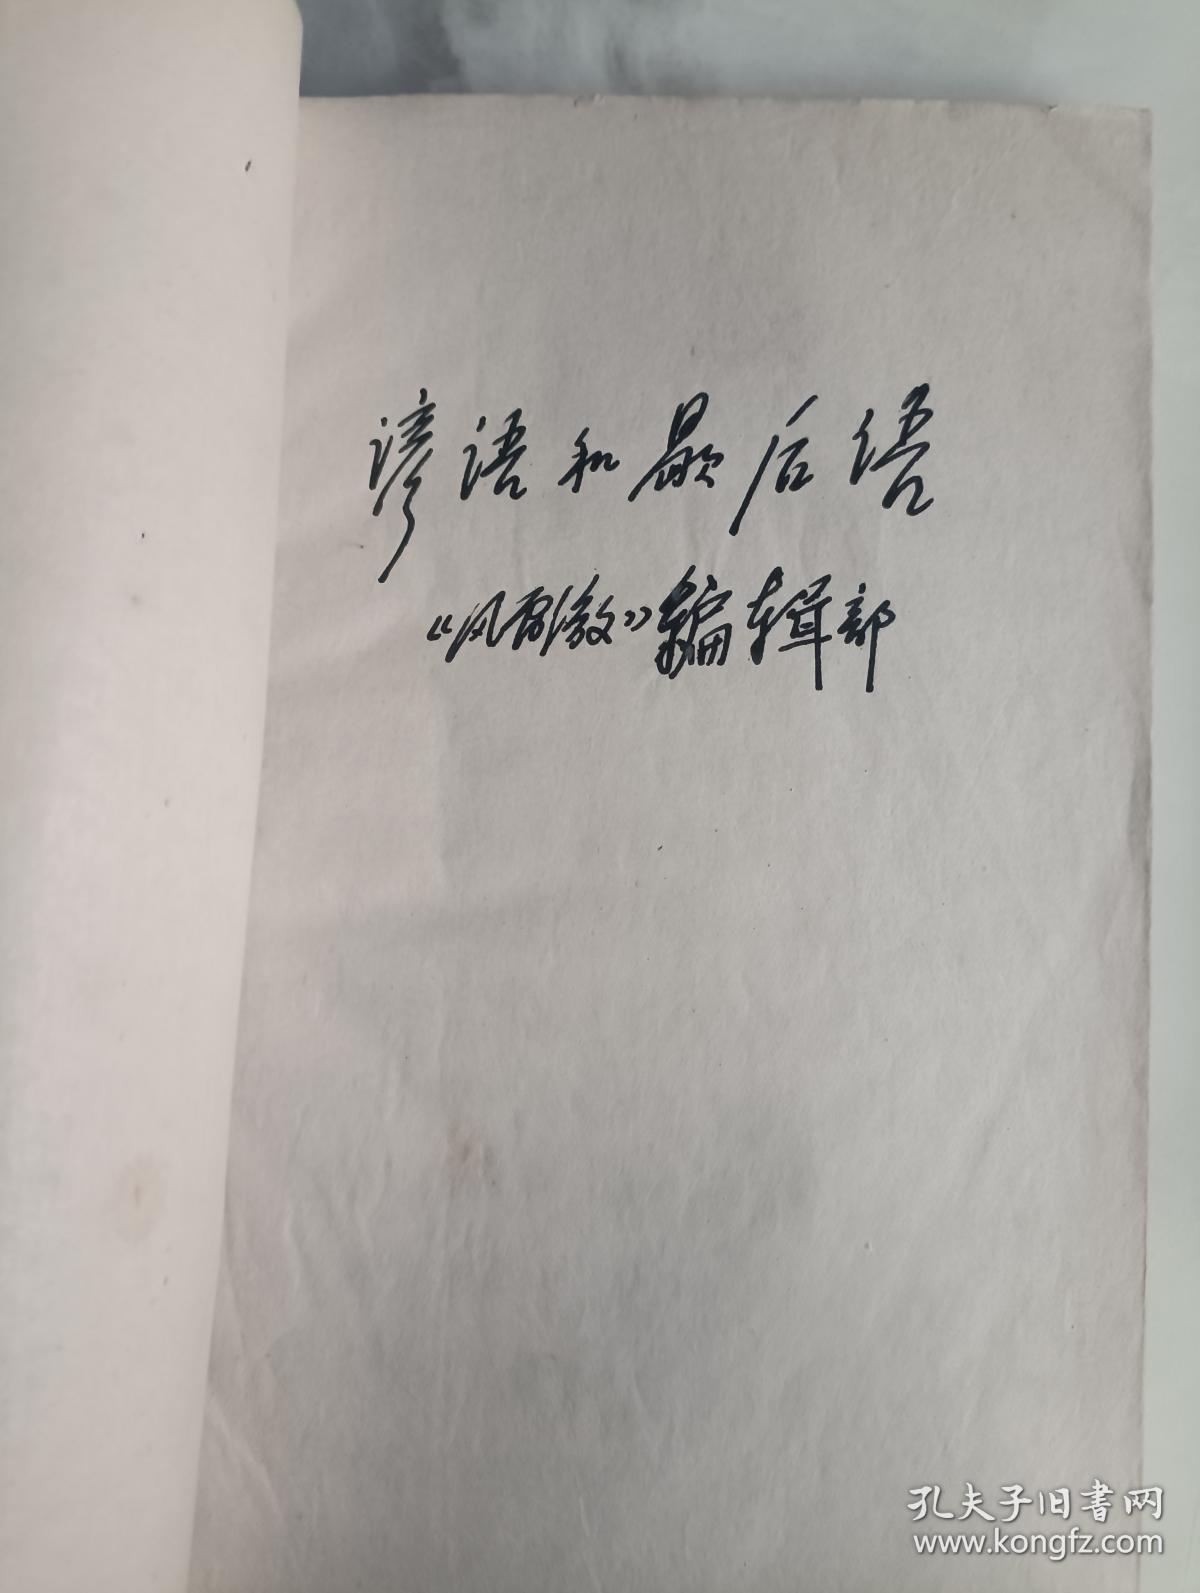 谚语和歇后语
《风雷激》编辑部
孔夫子旧书网
www.kongfz.com